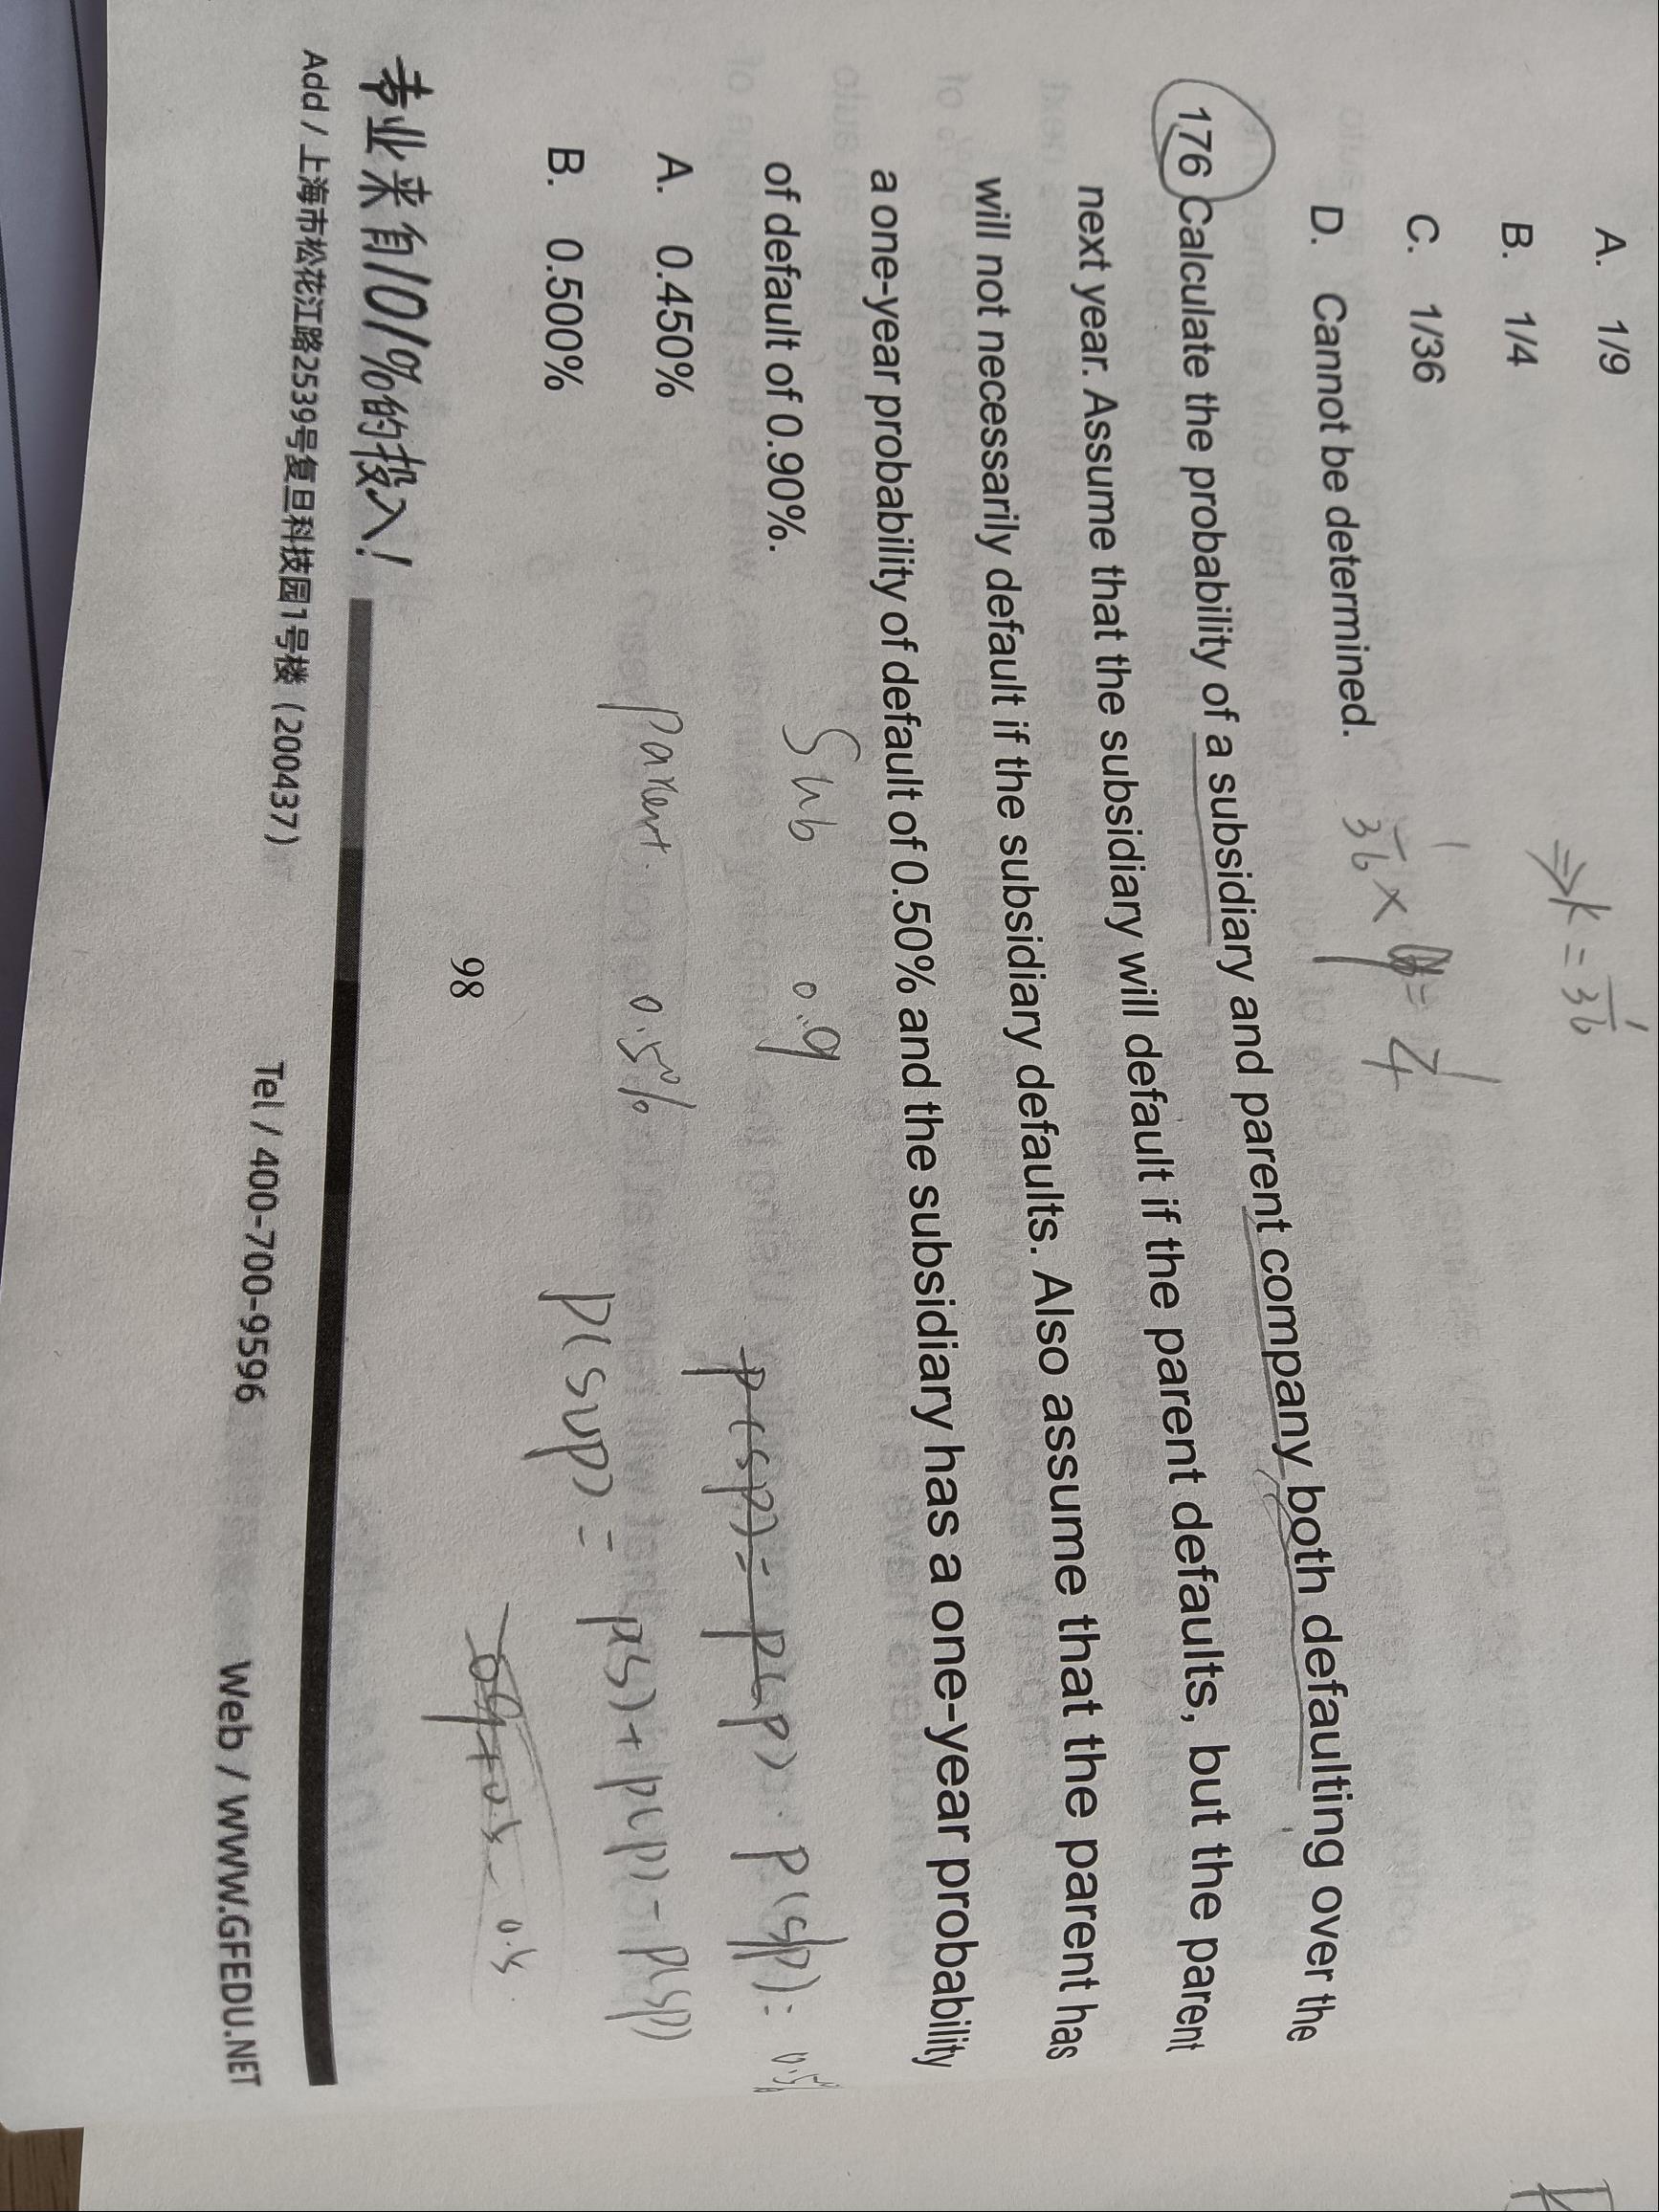 A. 1/9
B. 1/4
C. 1/36
D. Cannot be determined.
⇒ k = 1/36
1/36 × = 1/4
176 Calculate the probability of a subsidiary and parent company both defaulting over the
next year. Assume that the subsidiary will default if the parent defaults, but the parent
will not necessarily default if the subsidiary defaults. Also assume that the parent has
a one-year probability of default of 0.50% and the subsidiary has a one-year probability
of default of 0.90%.
Sub 0.9
P(SP) = P(P) · P(S|P) = 0.5%
A. 0.450%
parent 0.5%
P(S∪P) = P(S) + P(P) - P(SP)
B. 0.500%
98
专业来自101%的投入!
Add / 上海市松花江路2539号复旦科技园1号楼 (200437) Tel / 400-700-9596 Web / WWW.GFEDU.NET